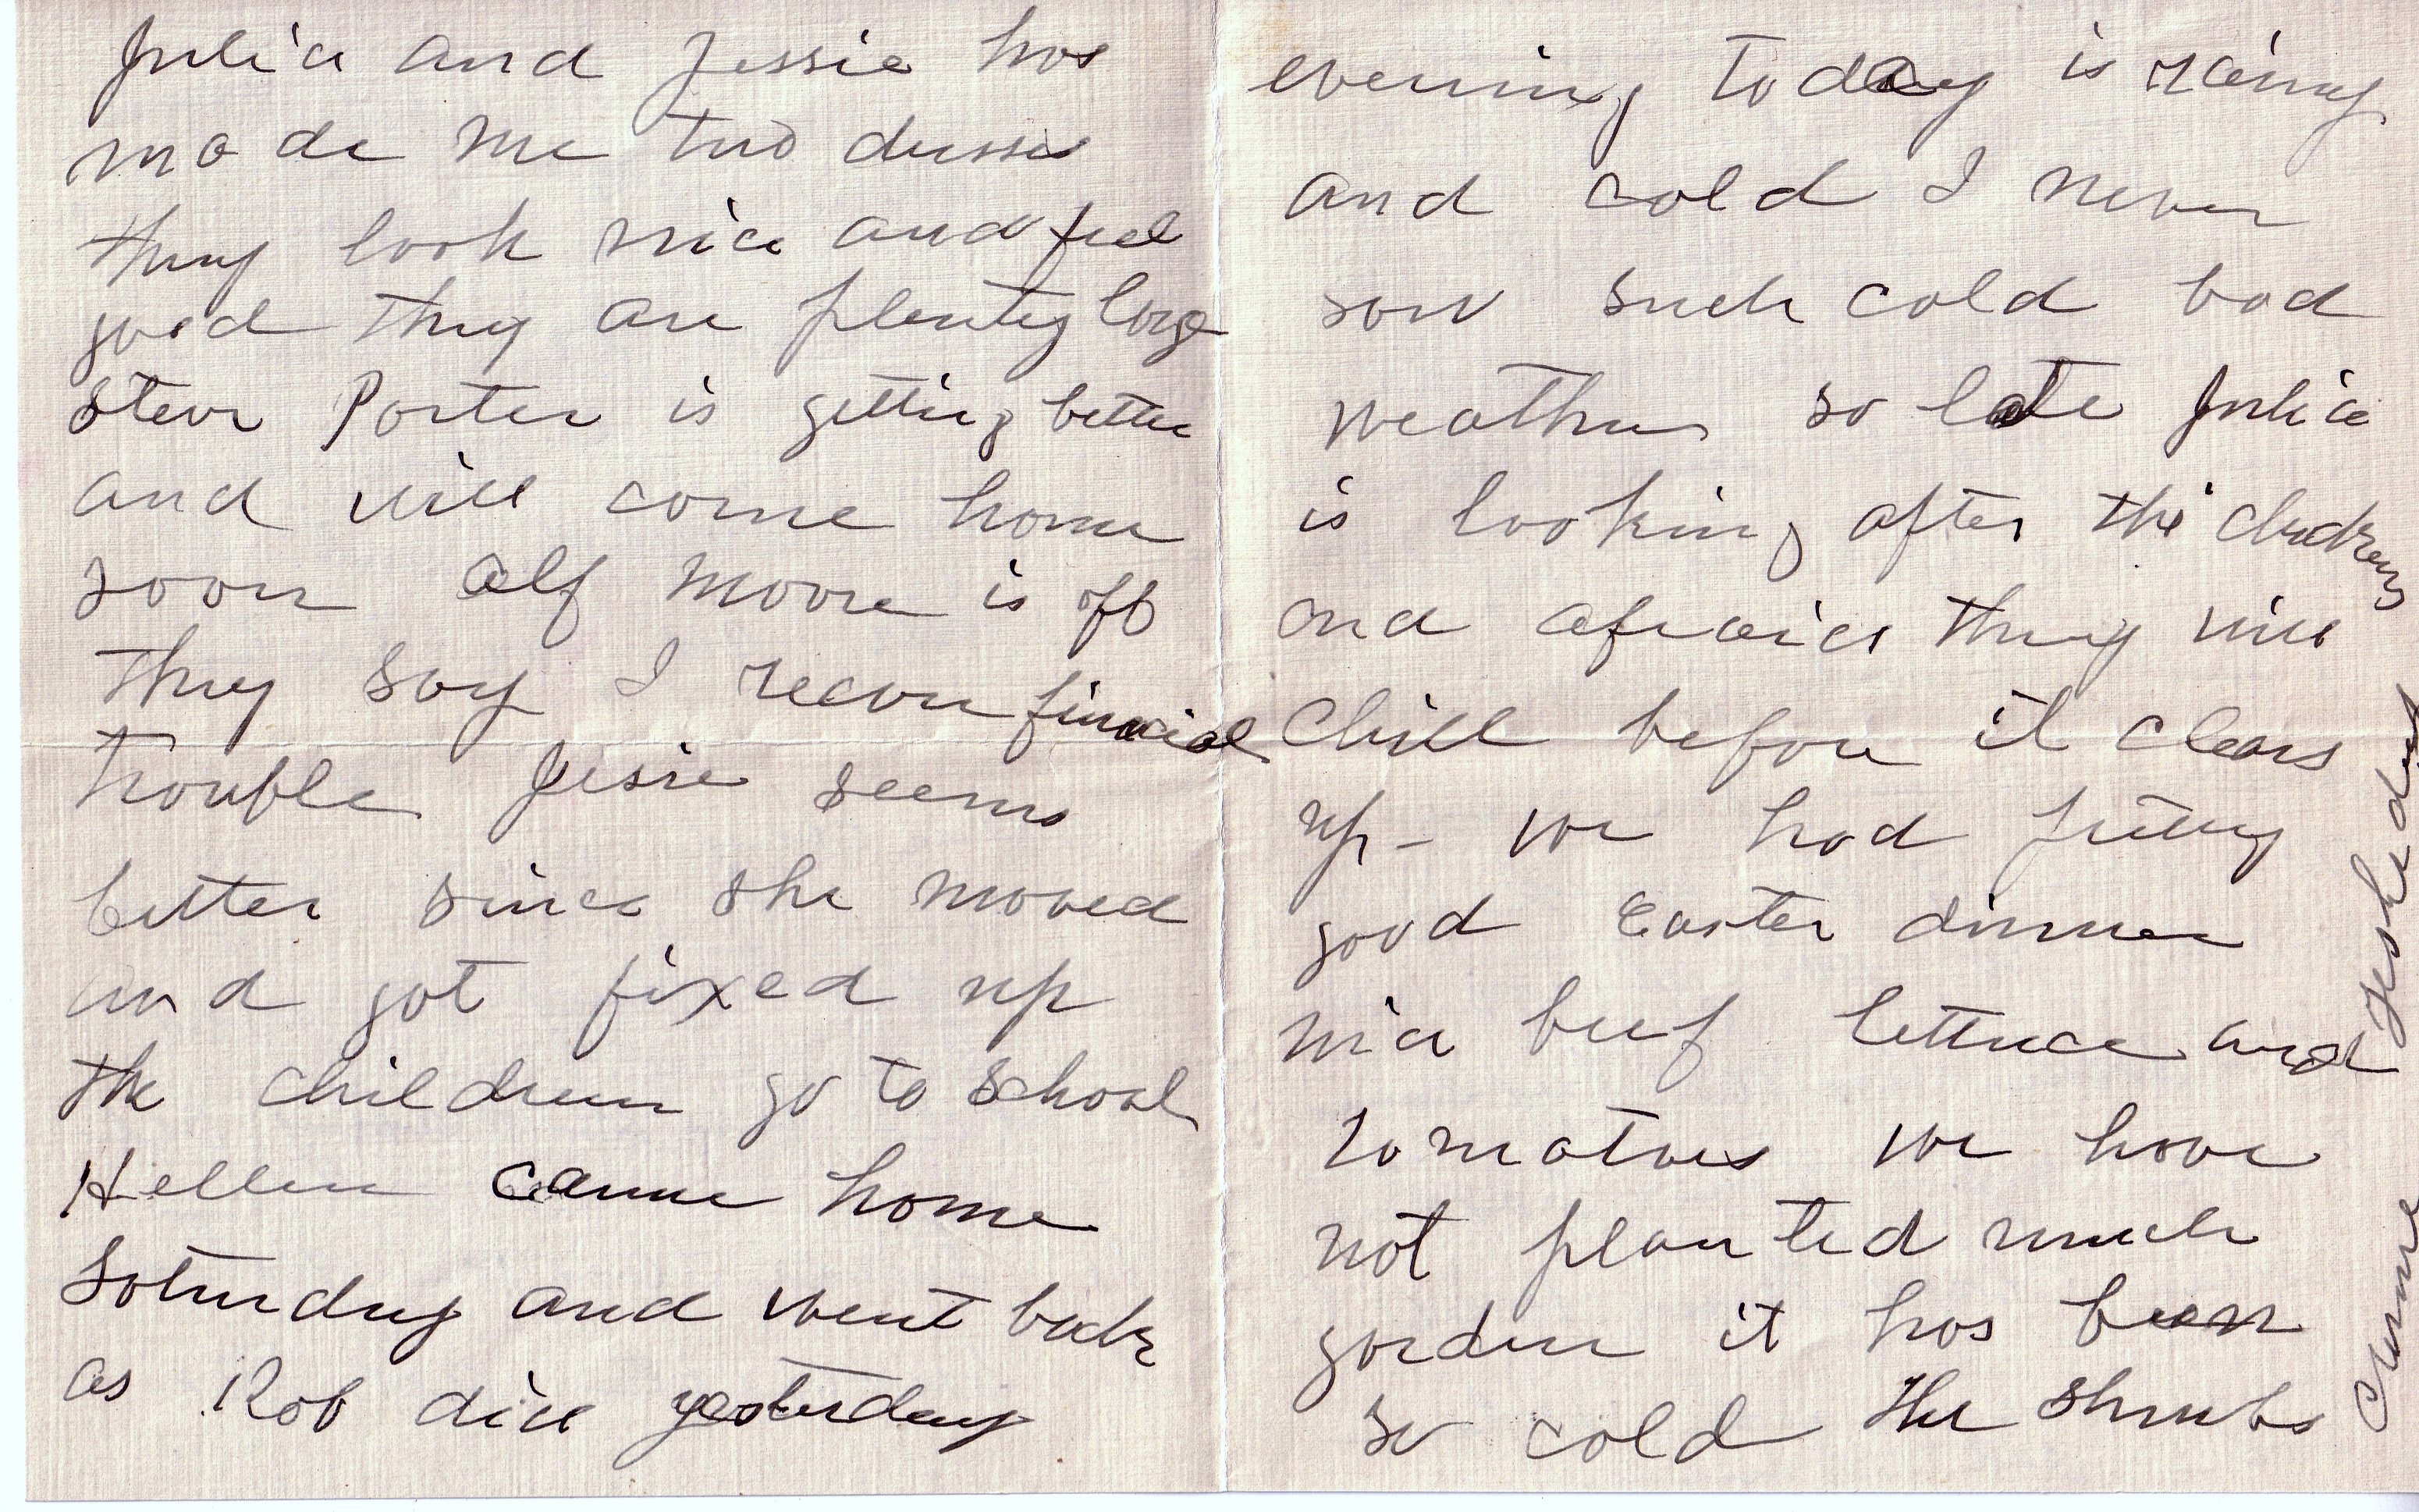 Julia and Jessie has
made me two dresses
they look nice and feel
good they are plenty large
Steve Porter is getting better
and will come home
soon Alf Moore is off
they say I recon finacial
trouble Jesie seems
better since she moved
and got fixed up
the children go to School
Hellen came home
Saturday and went back
as Rob did yesterday
evening today is rainy
and cold I never
saw such cold bad
weather so late Julia
is looking after the
and afraid they will
Chill before it clears
up - we had pretty
good Easter dinner
nice beef lettuce and
tomatoes we have
not planted much
garden it has been
so cold the shrubs